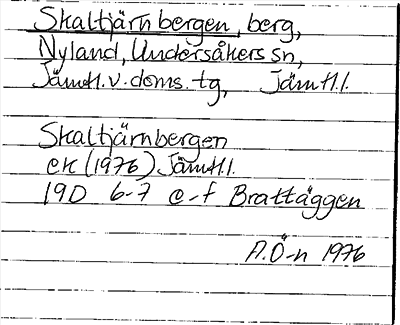 Skaltjärnbergen, berg,
Nyland, Undersåkers sn,
Jämtl. v. doms. tg, Jämtl.l.
Skaltjärnbergen
ek (1976) Jämtl.l.
19D 6-7 e-f Brattäggen
A.Ö-n 1976